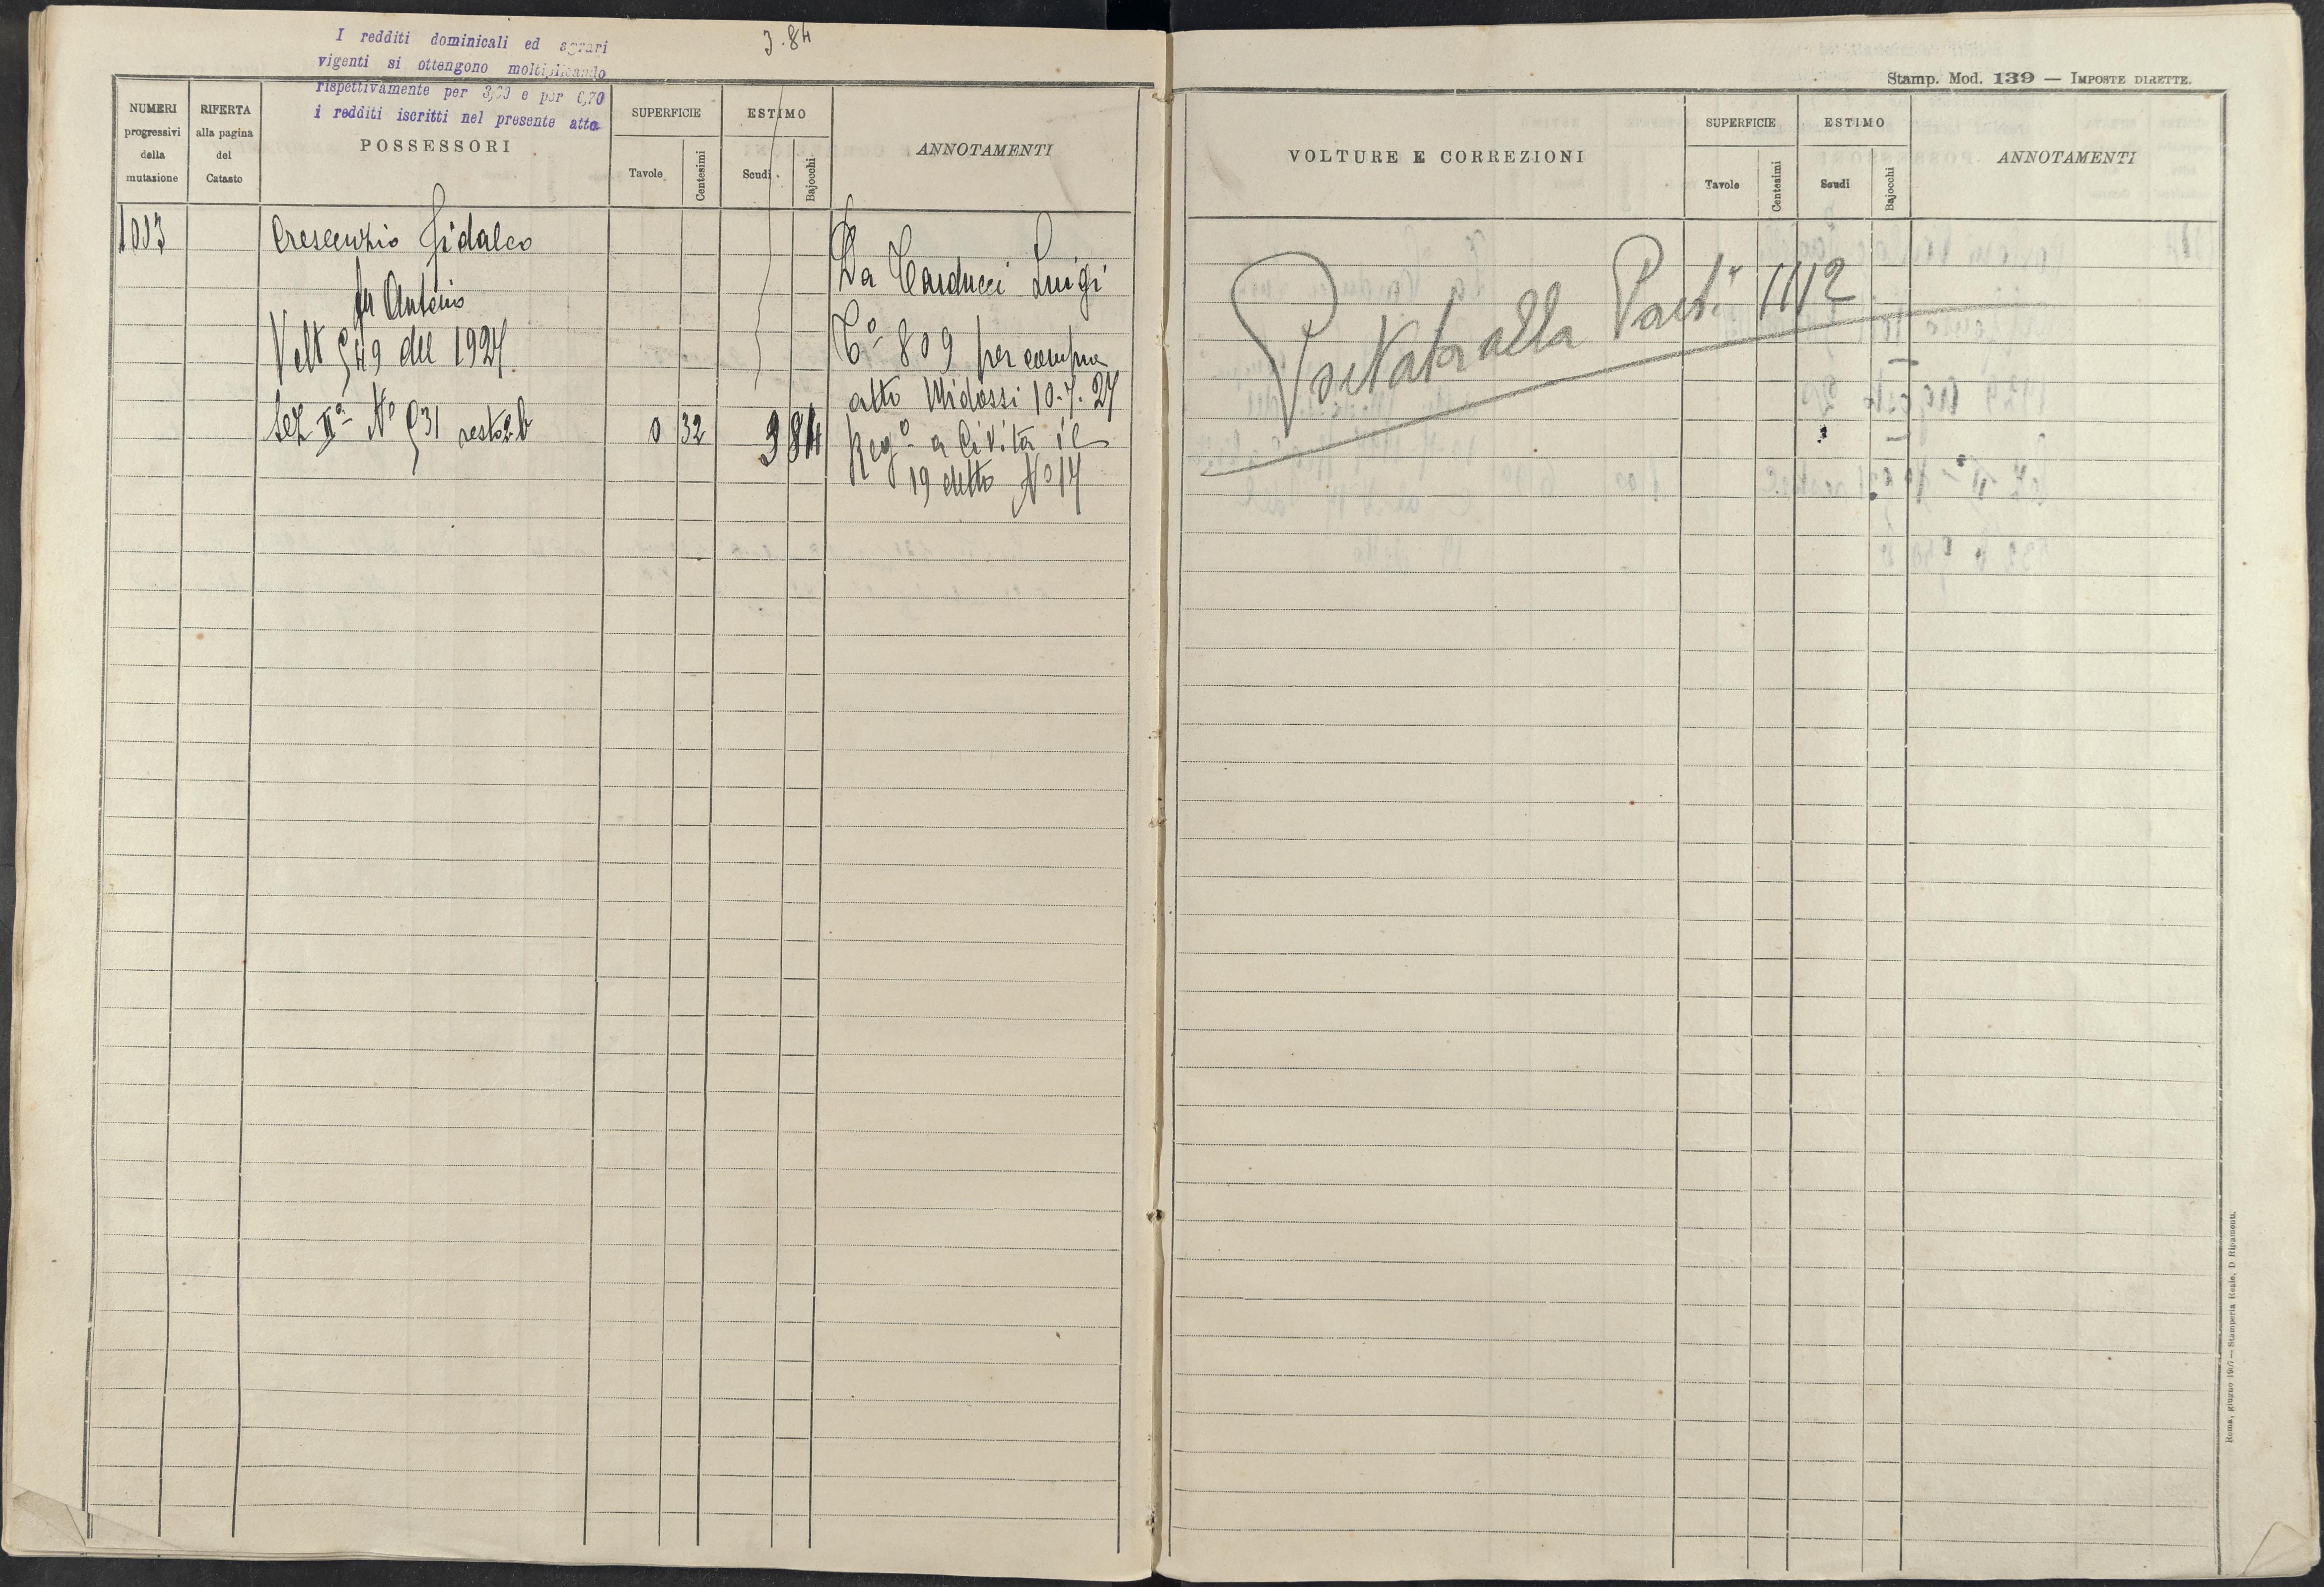 I redditi dominicali ed agrari
vigenti si ottengono moltiplicando
rispettivamente per 3,00 e per 0,70
i redditi iscritti nel presente atto
3.84
NUMERI
progressivi
della
mutazione
RIFERTA
alla pagina
del
Catasto
POSSESSORI
SUPERFICIE
Tavole
Centesimi
ESTIMO
Scudi
Bajocchi
ANNOTAMENTI
1013
Crescenzio Fidalco
fu Antonio
Volt 549 del 1927
Sez IIa No 531 resto2b
0 32
3 84
Da Carducci Luigi
Co 809 per compra
atto Midossi 10.7.27
Rego a Civita il
19 detto No 17
Stamp. Mod. 139 — IMPOSTE DIRETTE.
VOLTURE E CORREZIONI
SUPERFICIE
Tavole
Centesimi
ESTIMO
Scudi
Bajocchi
ANNOTAMENTI
alla Parti 1112
Roma, giugno 1927 — Stamperia Reale, D Ripamonti.